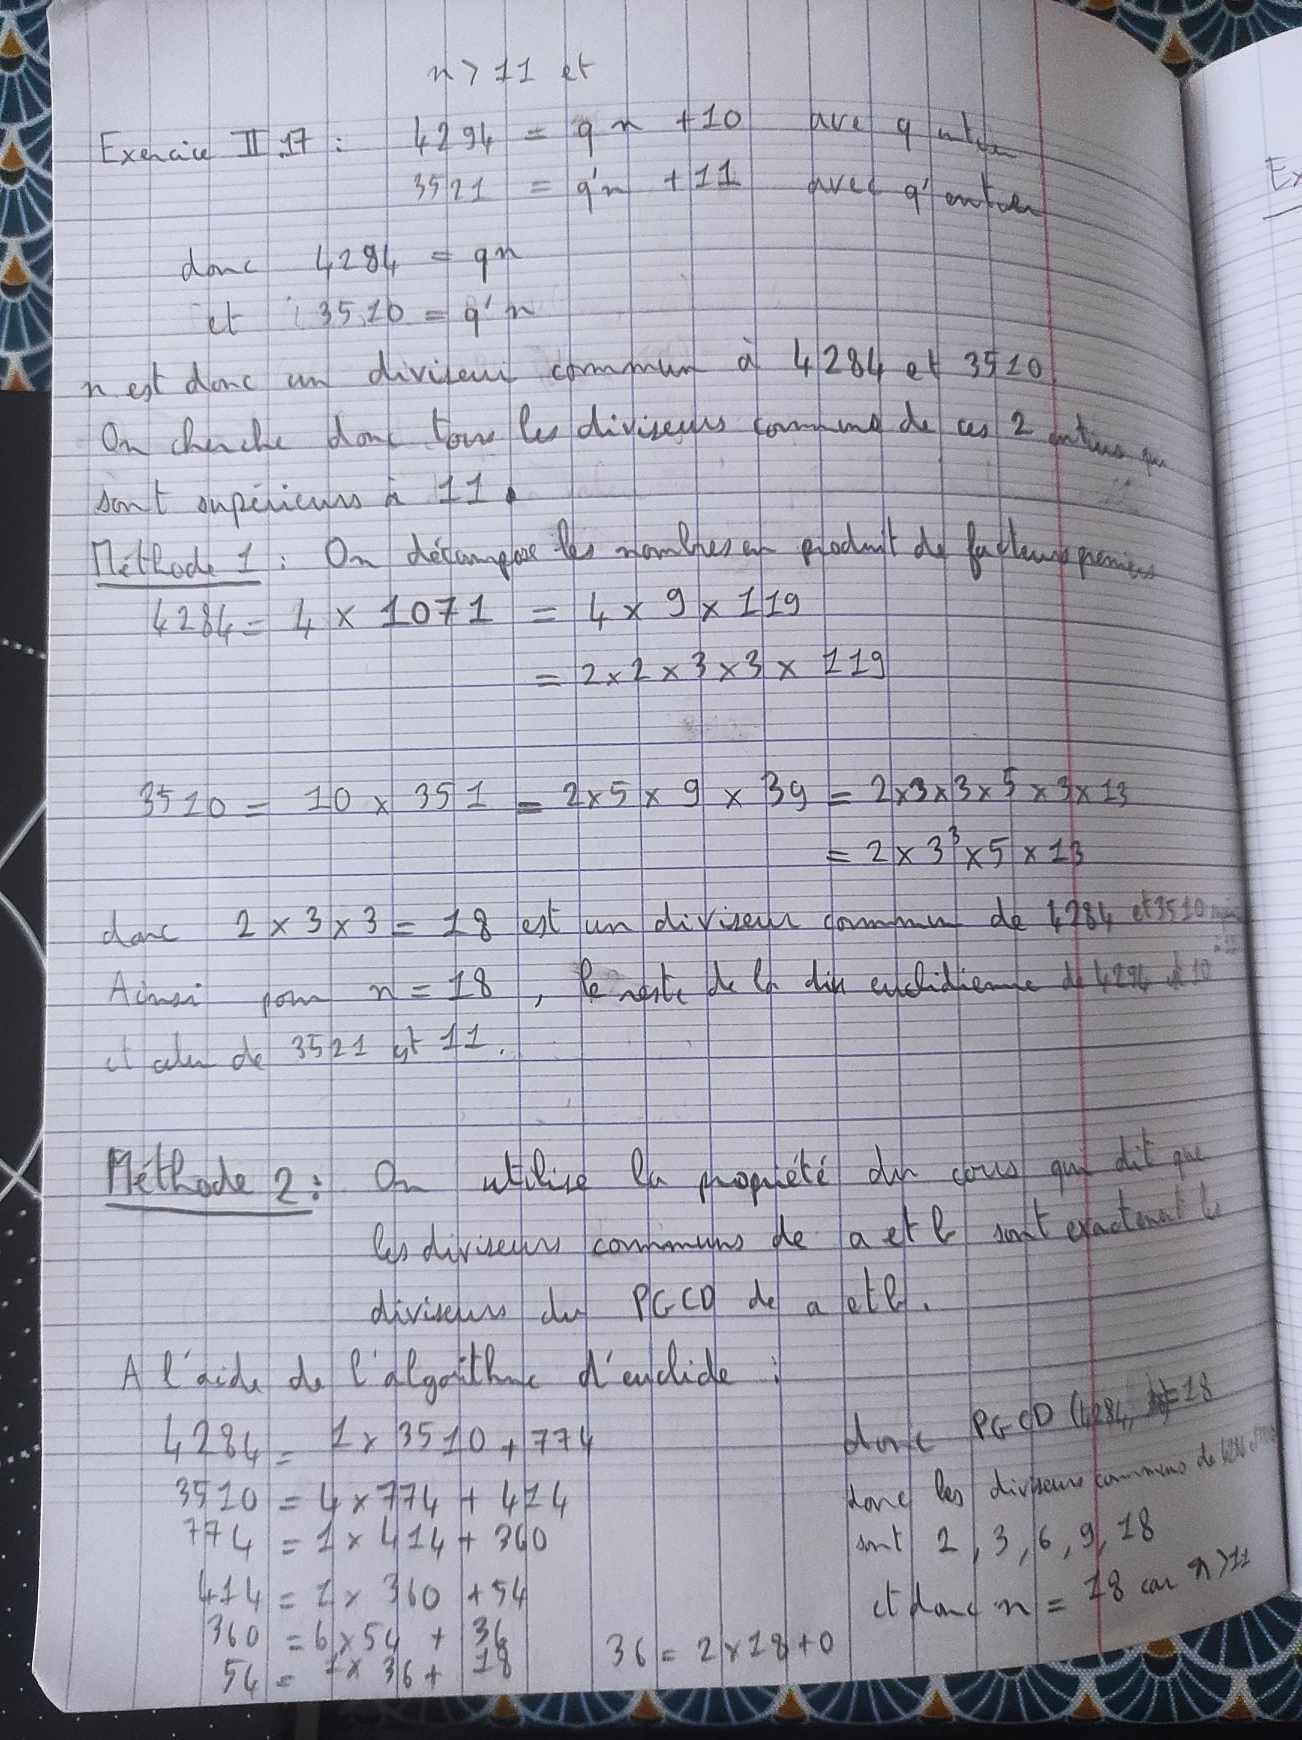 n > 11 et
Exercice II.17 : 4294 = qn + 10 avec q entier
3521 = q'n + 11 avec q' entier
donc 4284 = qn
et 3510 = q'n
n est donc un diviseur commun à 4284 et 3510
On cherche donc tous les diviseurs communs de ces 2 entiers qui
sont supérieurs à 11.
Méthode 1 : On décompose les nombres en produit de facteurs premiers
4284 = 4 × 1071 = 4 × 9 × 119
= 2 × 2 × 3 × 3 × 119
3510 = 10 × 351 = 2 × 5 × 9 × 39 = 2 × 3 × 3 × 5 × 3 × 13
= 2 × 3³ × 5 × 13
donc 2 × 3 × 3 = 18 est un diviseur commun de 4284 et 3510
Ainsi pour n = 18, le reste de la div euclidienne de 4294 est 10
et celui de 3521 est 11.
Méthode 2 : On utilise la propriété du cours qui dit que
les diviseurs communs de a et b sont exactement les
diviseurs du PGCD de a et b.
A l'aide de l'algorithme d'euclide :
4284 = 1 × 3510 + 774
3510 = 4 × 774 + 414
774 = 1 × 414 + 360
414 = 1 × 360 + 54
360 = 6 × 54 + 36
54 = 1 × 36 + 18
36 = 2 × 18 + 0
donc PGCD (4284, = 18
donc les diviseurs communs de
sont 2, 3, 6, 9, 18
et donc n = 18 car n > 11
Ex